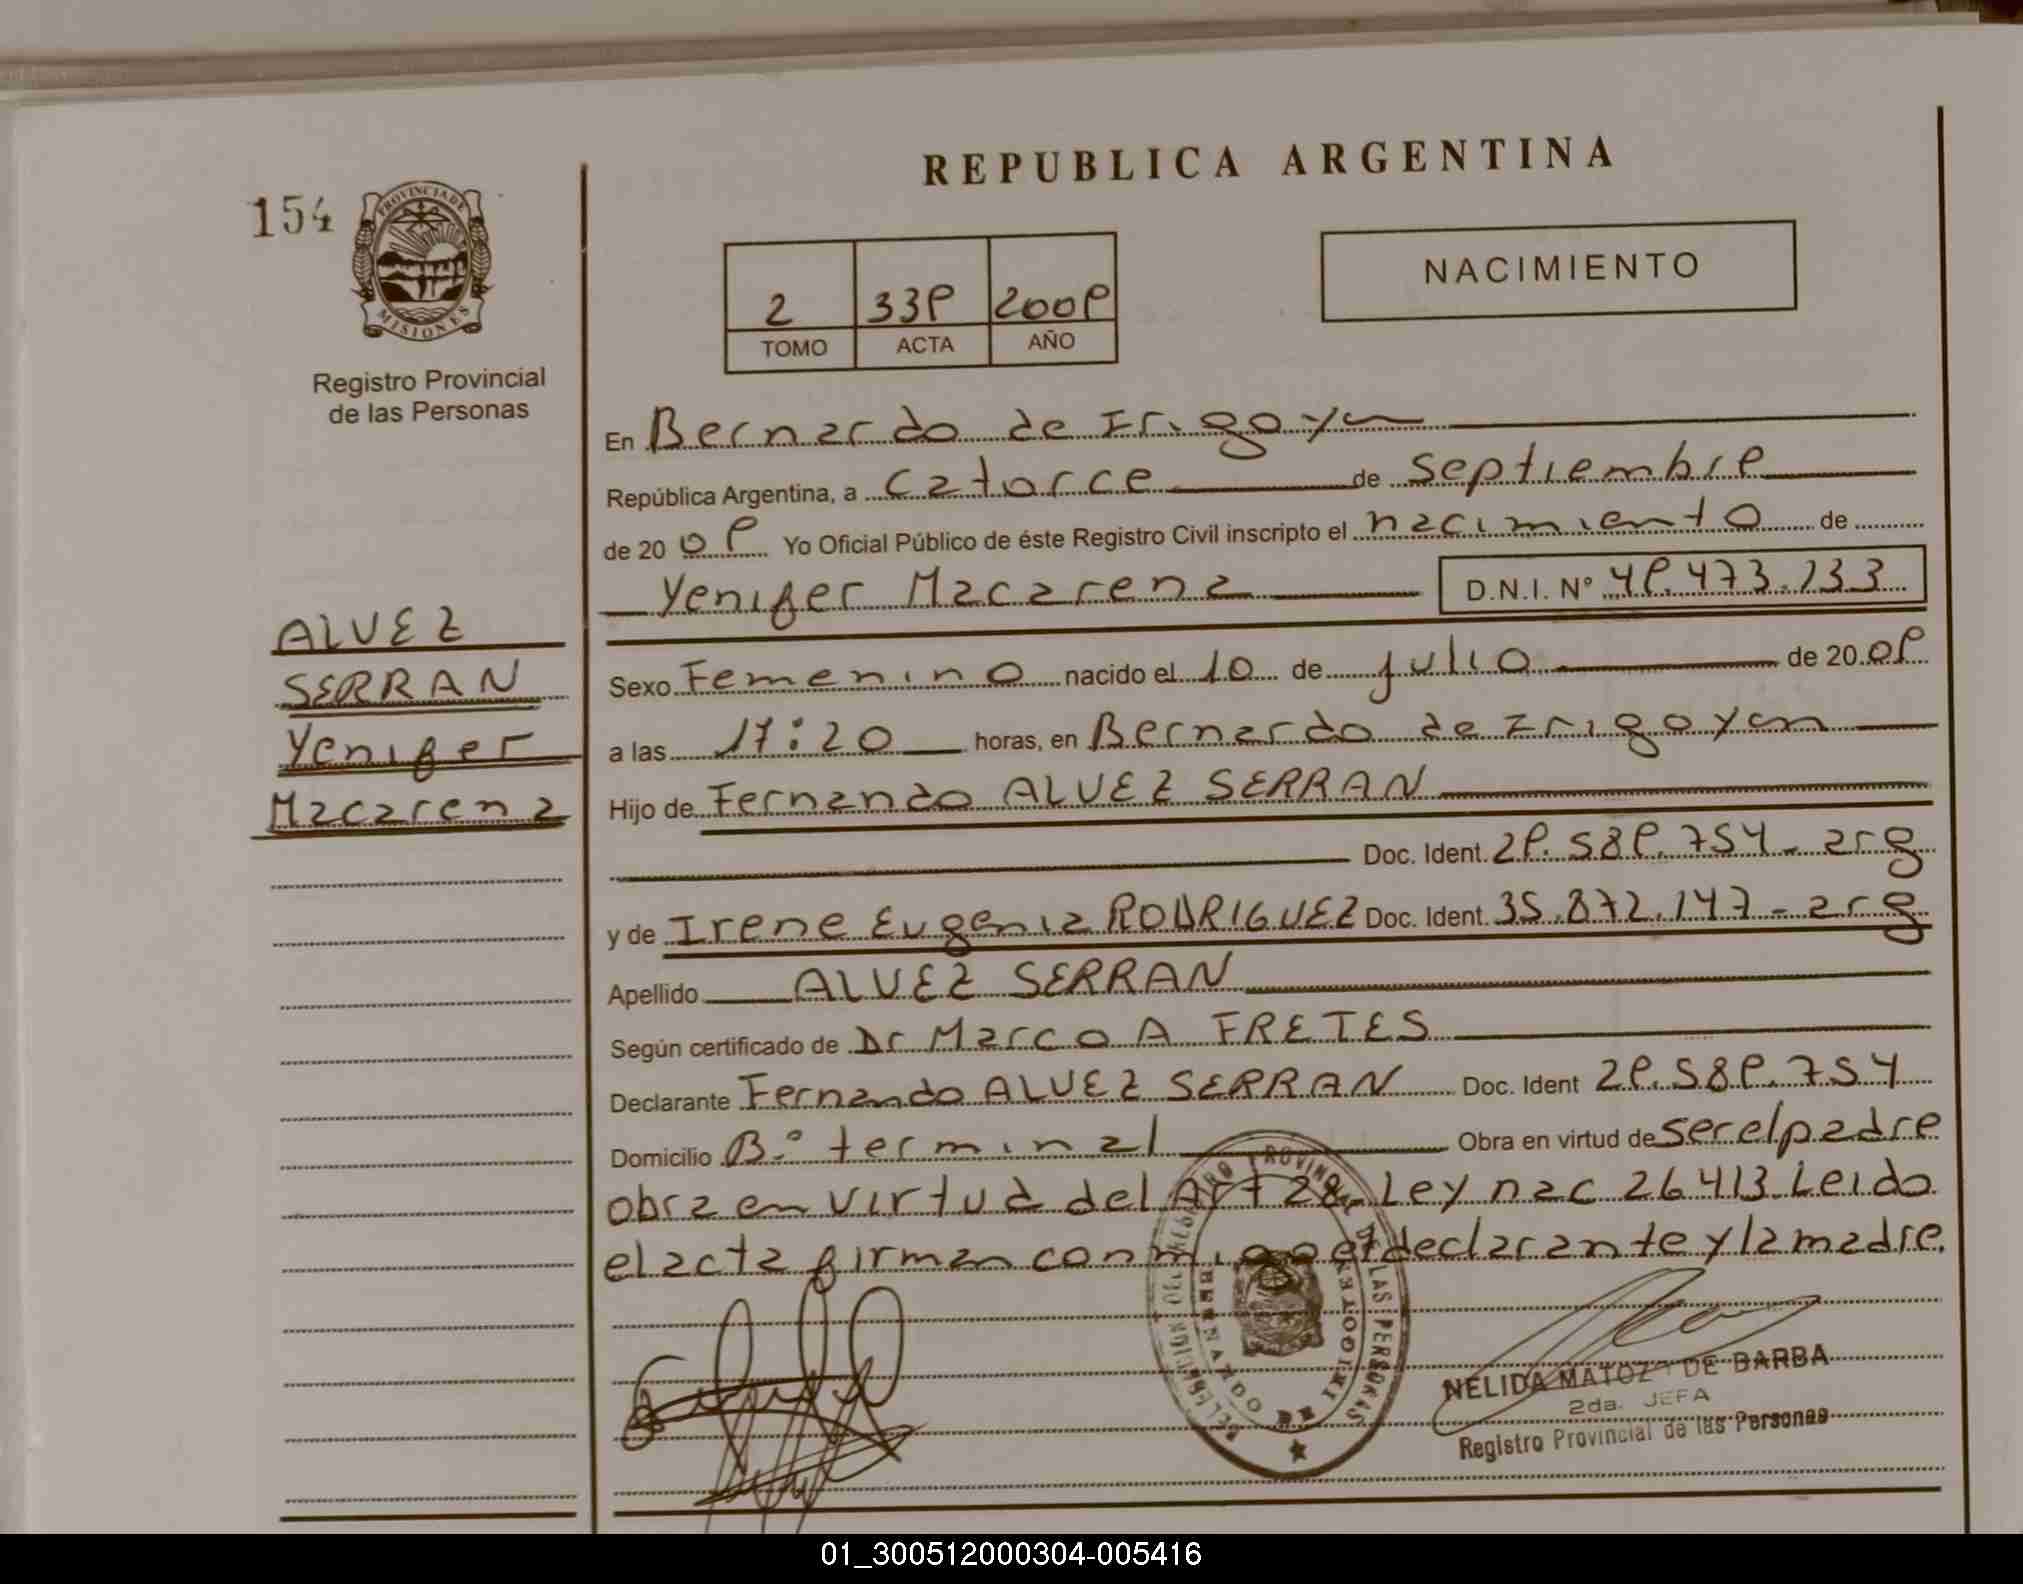 REPUBLICA ARGENTINA
154
PROVINCIA DE
MISIONES
Registro Provincial
de las Personas
2 339 2009
TOMO ACTA AÑO
NACIMIENTO
En Bernardo de Irigoyen
República Argentina, a catorce de septiembre
de 20 09 Yo Oficial Público de éste Registro Civil inscripto el nacimiento de
Yenifer Macarena D.N.I. Nº 49.473.133
ALVEZ
SERRAN
Yenifer
Macarena
Sexo Femenino nacido el 10 de julio de 20 09
a las 17:20 horas, en Bernardo de Irigoyen
Hijo de Fernando ALVEZ SERRAN
Doc. Ident. 29.589.754 - arg
y de Irene Eugenia RODRIGUEZ Doc. Ident. 35.872.147 - arg
Apellido ALVEZ SERRAN
Según certificado de Dr Marco A FRETES
Declarante Fernando ALVEZ SERRAN Doc. Ident 29.589.754
Domicilio Bº terminal Obra en virtud de ser el padre
obra en virtud del Art 28. Ley nac 26413. Leido
el acta firman conmigo el declarante y la madre.
NELIDA MATOZO DE BARBA
2da. JEFA
Registro Provincial de las Personas
01_300512000304-005416